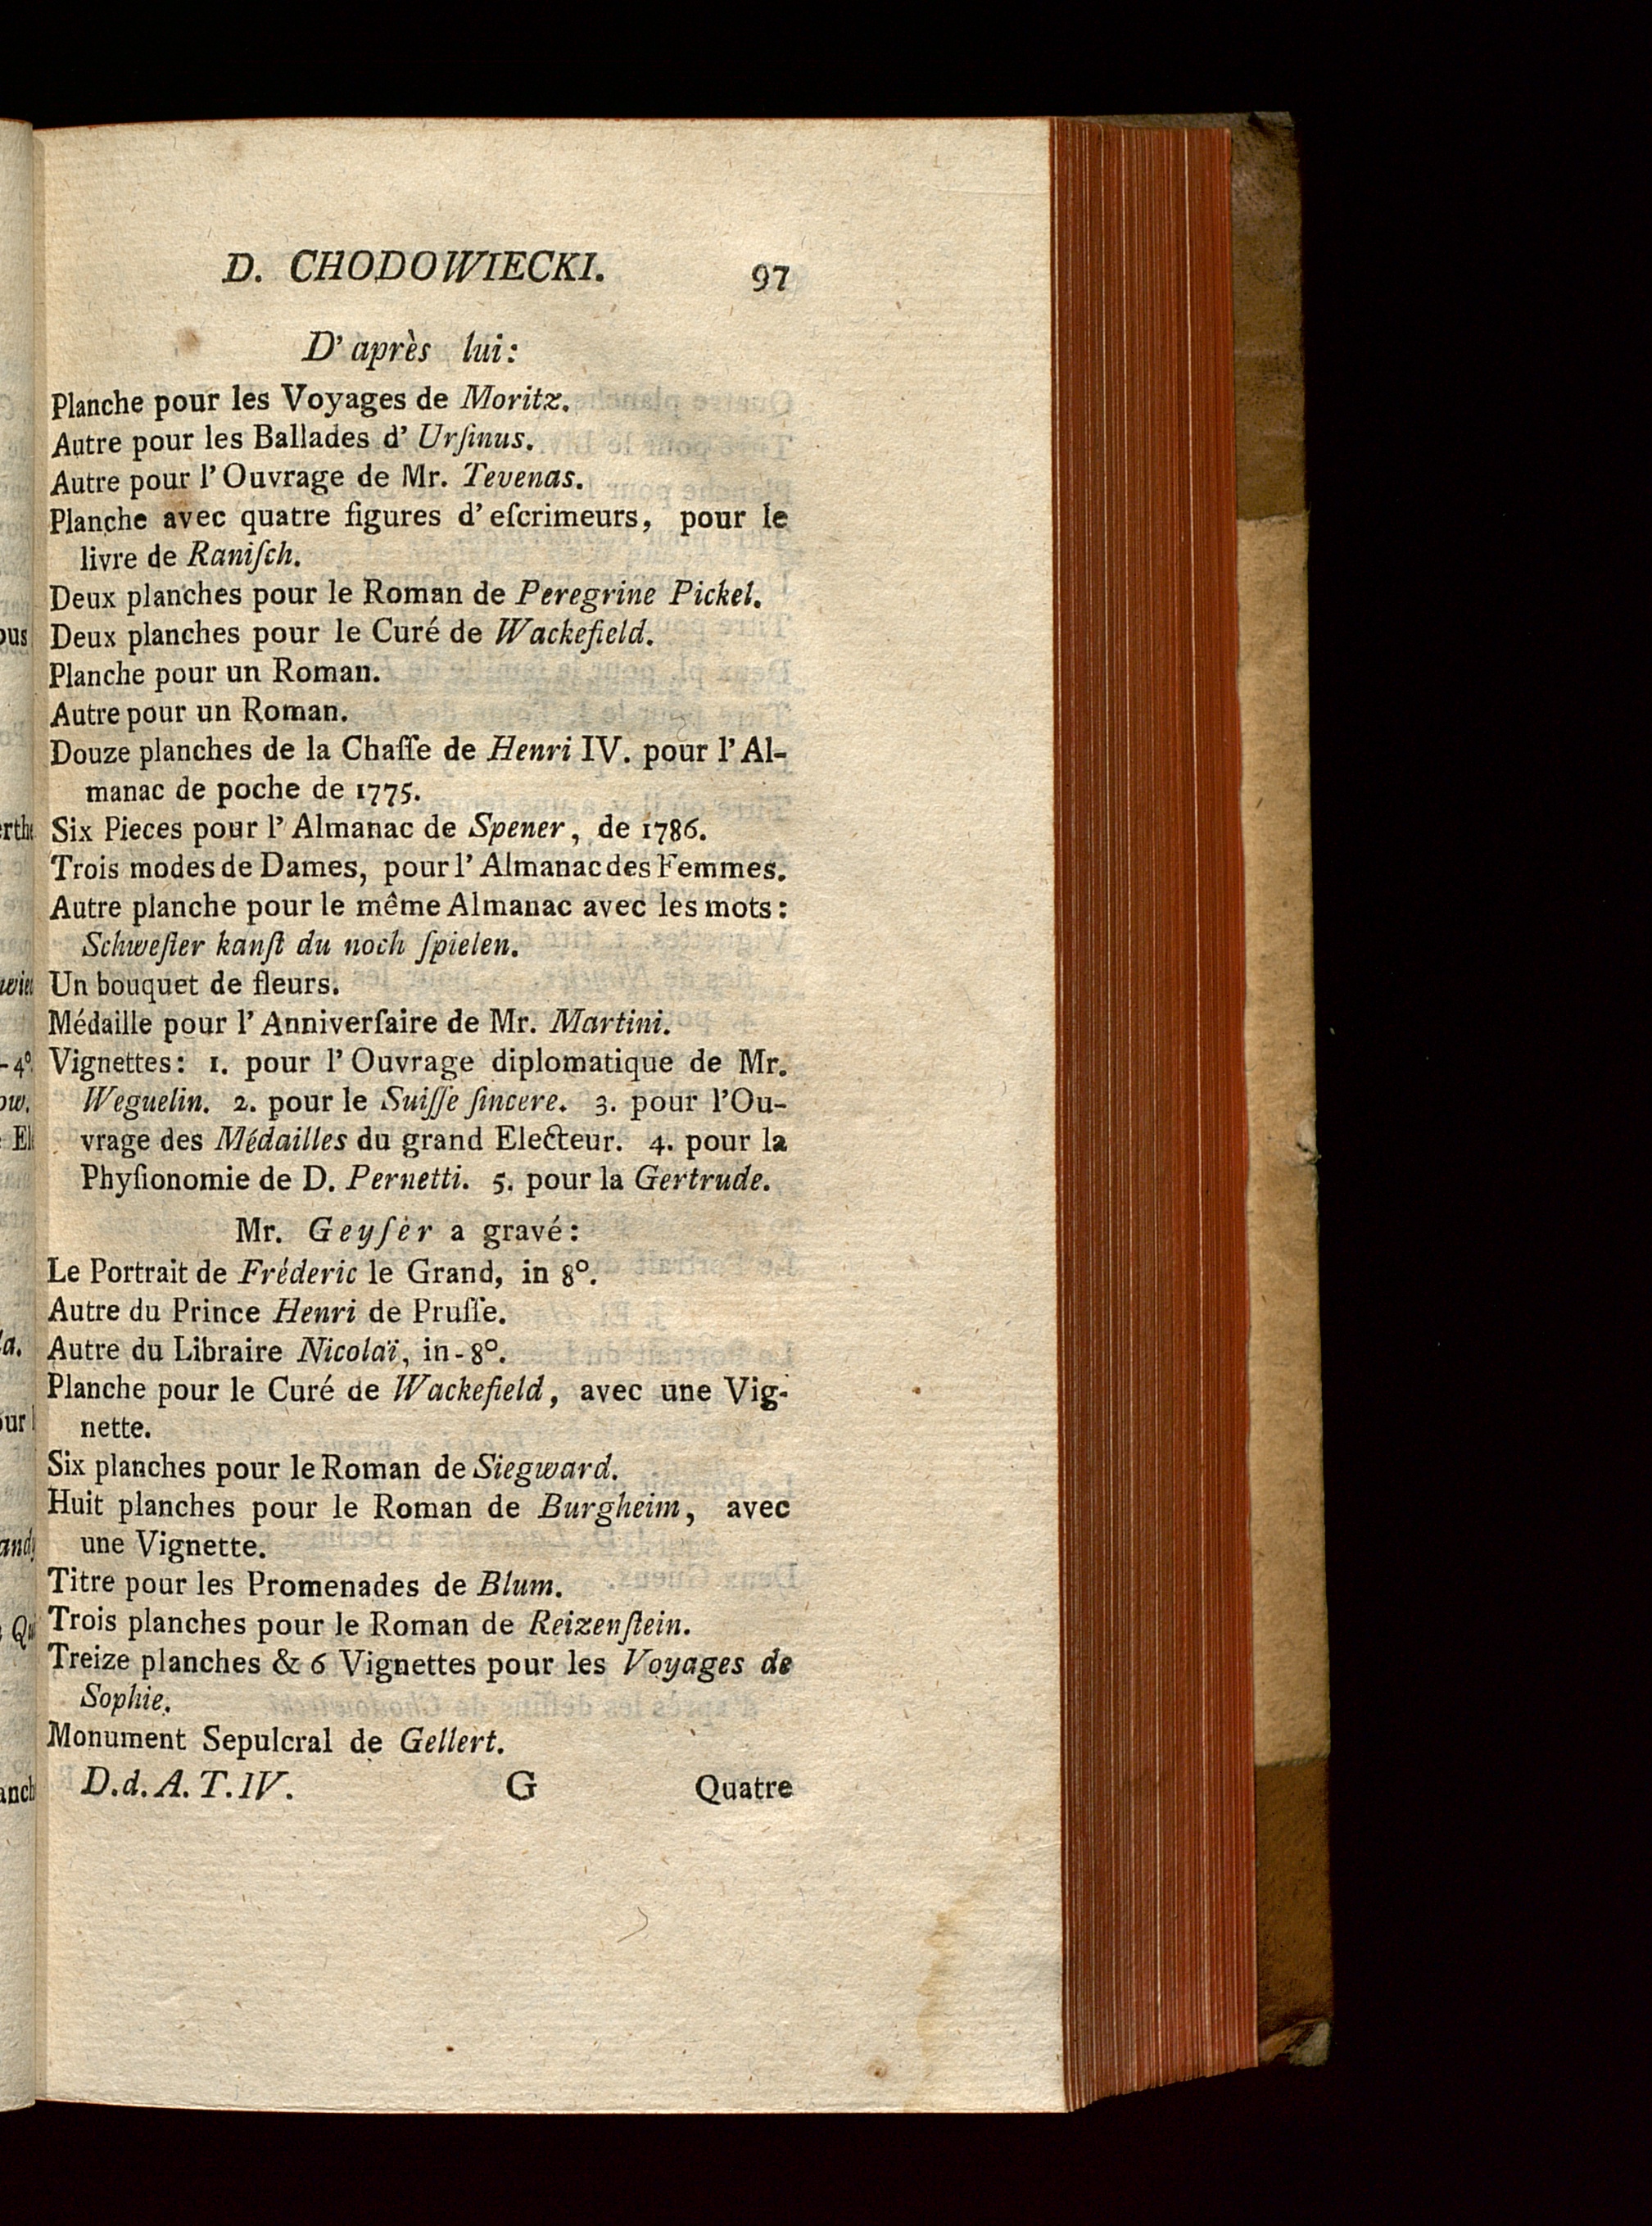 D. CHODOWIECKI. 97
D' après lui:
Planche pour les Voyages de Moritz.
Autre pour les Ballades d' Urſinus.
Autre pour l' Ouvrage de Mr. Tevenas.
Planche avec quatre figures d' eſcrimeurs, pour le
livre de Raniſch.
Deux planches pour le Roman de Peregrine Pickel.
Deux planches pour le Curé de Wackefield.
Planche pour un Roman.
Autre pour un Roman.
Douze planches de la Chaſſe de Henri IV. pour l' Al-
manac de poche de 1775.
Six Pieces pour l' Almanac de Spener, de 1786.
Trois modes de Dames, pour l' Almanac des Femmes.
Autre planche pour le même Almanac avec les mots:
Schweſter kanſt du noch ſpielen.
Un bouquet de fleurs.
Médaille pour l' Anniverſaire de Mr. Martini.
Vignettes: 1. pour l' Ouvrage diplomatique de Mr.
Weguelin. 2. pour le Suiſſe ſincere. 3. pour l'Ou-
vrage des Médailles du grand Electeur. 4. pour la
Phyſionomie de D. Pernetti. 5. pour la Gertrude.
Mr. Geyſer a gravé:
Le Portrait de Fréderic le Grand, in 8°.
Autre du Prince Henri de Pruſſe.
Autre du Libraire Nicolaï, in-8°.
Planche pour le Curé de Wackefield, avec une Vig-
nette.
Six planches pour le Roman de Siegward.
Huit planches pour le Roman de Burgheim, avec
une Vignette.
Titre pour les Promenades de Blum.
Trois planches pour le Roman de Reizenſtein.
Treize planches & 6 Vignettes pour les Voyages de
Sophie.
Monument Sepulcral de Gellert.
D.d.A.T.IV. G Quatre